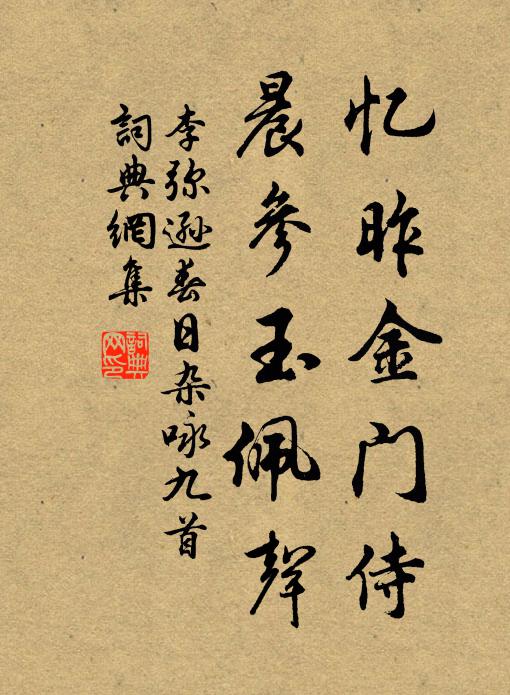 忆昨金门侍
晨参玉佩声
李弥逊春日杂咏九首
詞典網集
詞典網印